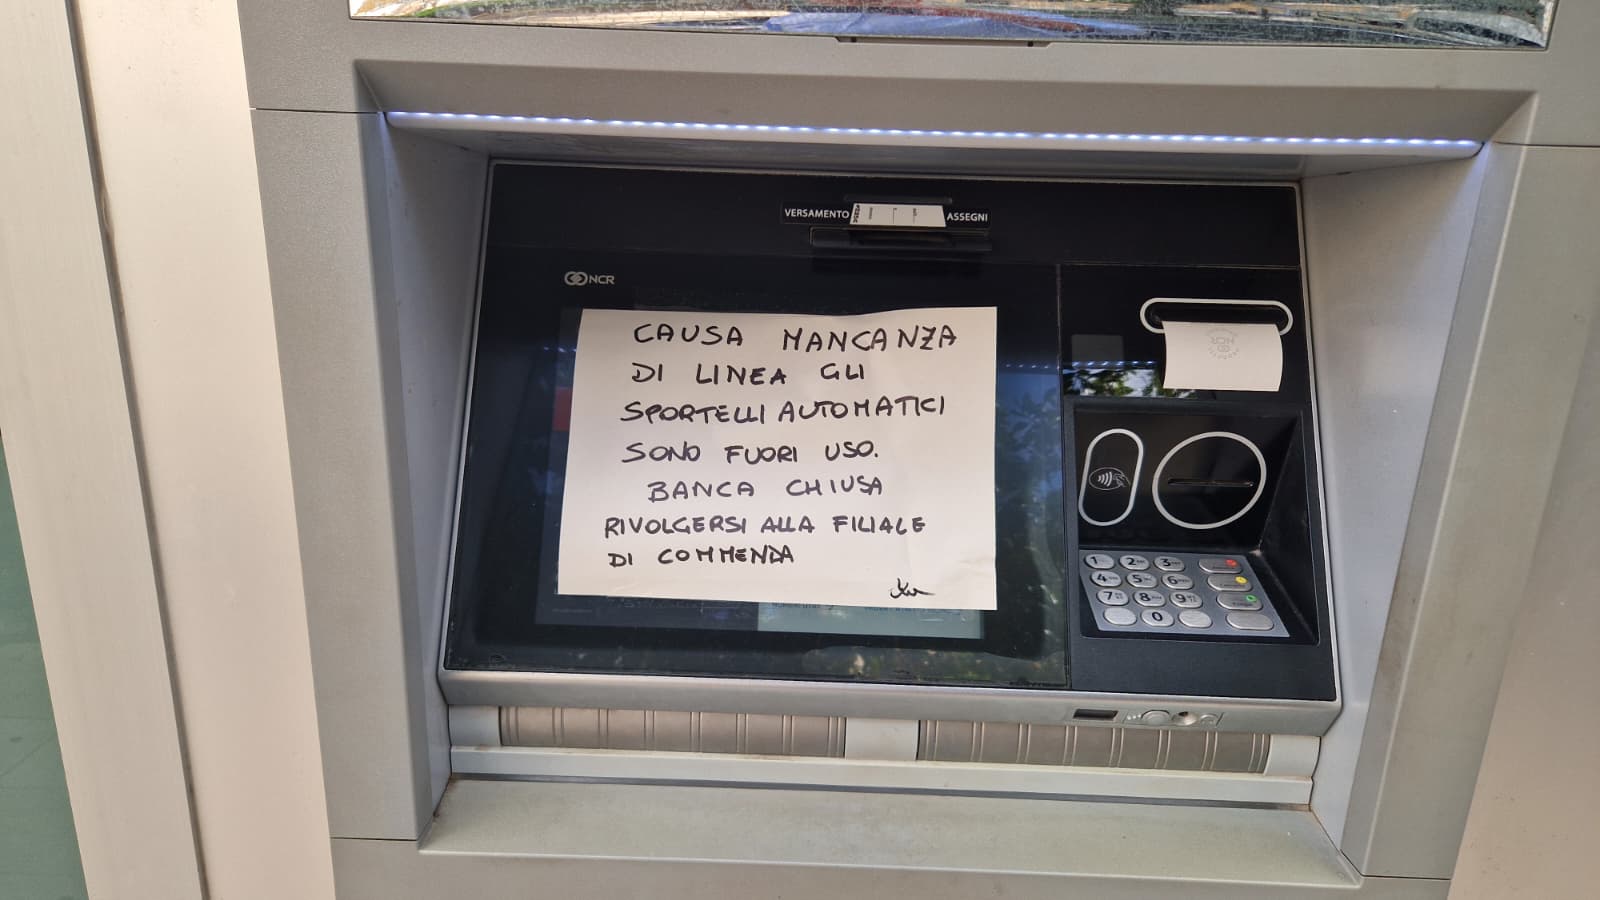 VERSAMENTO ASSEGNI
NCR
CAUSA MANCANZA
DI LINEA GLI
SPORTELLI AUTOMATICI
SONO FUORI USO.
BANCA CHIUSA
RIVOLGERSI ALLA FILIALE
DI COMMENDA
NCR
1 2 3
4 5 6
7 8 9
0